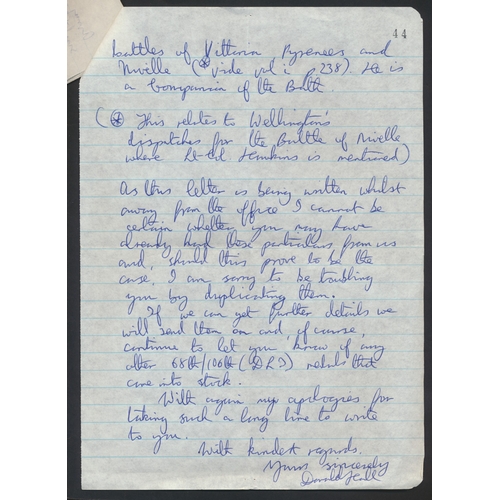 44
battles of Vittoria Pyrenees and
Nivelle (* vide vol i p 238). He is
a Companion of the Bath.
(* This relates to Wellington's
dispatches for the Battle of Nivelle
where Lt-Col Hawkins is mentioned)
As this letter is being written whilst
away from the office I cannot be
certain whether you may have
already had these particulars from us
and, should this prove to be the
case, I am sorry to be troubling
you by duplicating them.
If we can get further details we
will send them on and, of course,
continue to let you know if any
other 68th/106th (DLI) medals that
come into stock.
With again my apologies for
taking such a long time to write
to you.
With kindest regards.
Yours sincerely
Donald Hall